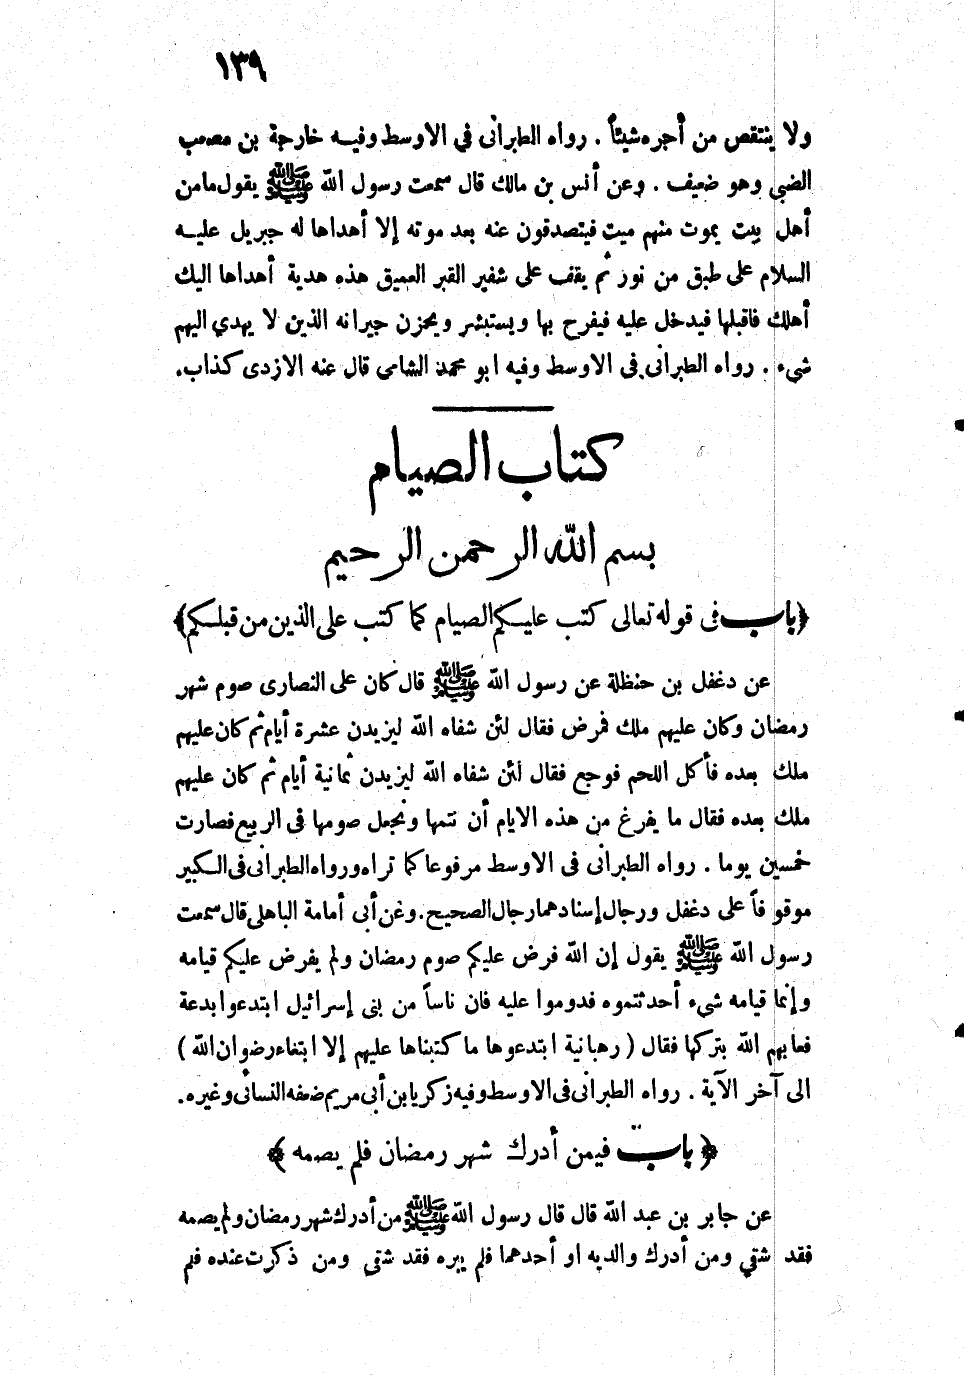 ١٣٩
ولا ينتقص من أجره شيئاً . رواه الطبرانى في الاوسط وفيه خارجة بن مصعب
الضبي وهو ضعيف . وعن أنس بن مالك قال سمعت رسول الله ﷺ يقول ما من
أهل بيت يموت منهم ميت فيتصدقون عنه بعد موته إلا أهداها له جبريل عليه
السلام على طبق من نور ثم يقف على شفير القبر العميق هذه هدية أهداها اليك
أهلك فاقبلها فيدخل عليه فيفرح بها ويستبشر ويحزن جيرانه الذين لا يهدي اليهم
شيء . رواه الطبرانى فى الاوسط وفيه ابو محمد الشامى قال عنه الازدى كذاب.
كتاب الصيام
بسم الله الرحمن الرحيم
﴿باب فى قوله تعالى كتب عليكم الصيام كما كتب على الذين من قبلكم﴾
عن دغفل بن حنظلة عن رسول الله ﷺ قال كان على النصارى صوم شهر
رمضان وكان عليهم ملك فمرض فقال لئن شفاه الله ليزيدن عشرة أيام ثم كان عليهم
ملك بعده فأكل اللحم فوجع فقال لئن شفاه الله ليزيدن ثمانية أيام ثم كان عليهم
ملك بعده فقال ما يفرغ من هذه الايام أن نتمها ونجعل صومها فى الربيع فصارت
خمسين يوما . رواه الطبرانى فى الاوسط مرفوعا كما تراه ورواه الطبرانى فى الكبير
موقوفاً على دغفل ورجال إسنادهما رجال الصحيح. وعن أبى أمامة الباهلى قال سمعت
رسول الله ﷺ يقول إن الله فرض عليكم صوم رمضان ولم يفرض عليكم قيامه
وإنما قيامه شيء أحدثتموه فدوموا عليه فان ناساً من بنى إسرائيل ابتدعوا بدعة
فعابهم الله بتركها فقال ( رهبانية ابتدعوها ما كتبناها عليهم إلا ابتغاء رضوان الله )
الى آخر الآية . رواه الطبرانى فى الاوسط وفيه زكريا بن أبى مريم ضعفه النسائى وغيره.
﴿ باب فيمن أدرك شهر رمضان فلم يصمه ﴾
عن جابر بن عبد الله قال قال رسول الله ﷺ من أدرك شهر رمضان ولم يصمه
فقد شقي ومن أدرك والديه او أحدهما فلم يبره فقد شقى ومن ذكرت عنده فلم